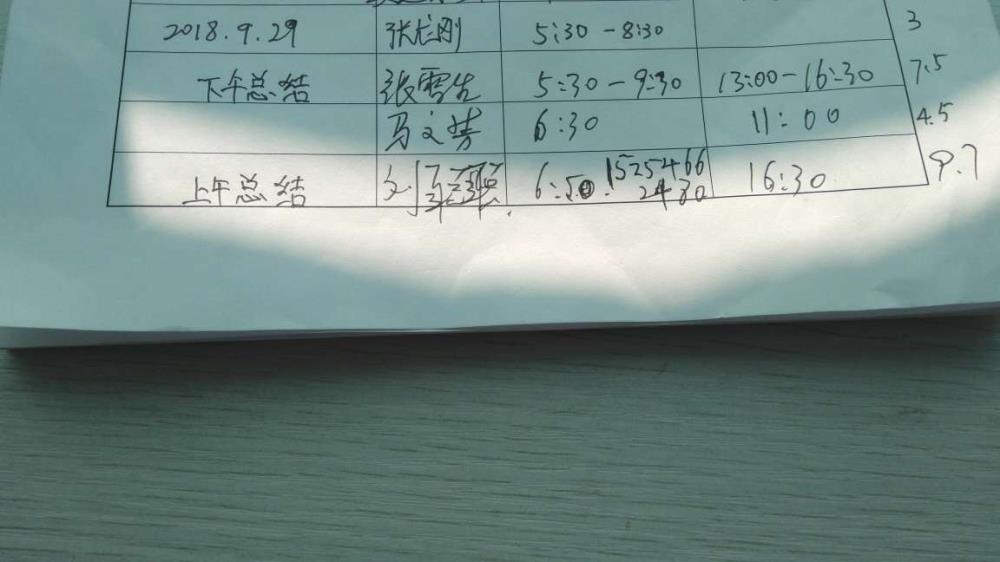 2018.9.29 张龙刚 5:30-8:30 3
下午总结 张雪生 5:30-9:30 13:00-16:30 7.5
马文芳 6:30 11:00 4.5
上午总结 6:50 15254662430 16:30 9.7